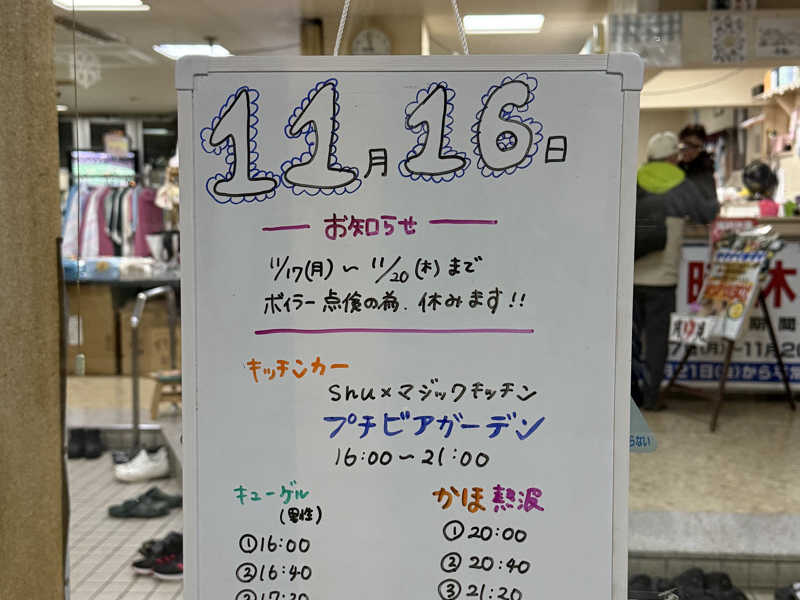 11月16日
お知らせ
11/17(月)～11/20(木)まで
ボイラー点検の為、休みます!!
キッチンカー
Shu×マジックキッチン
プチビアガーデン
16:00～21:00
キューゲル
(男性)
①16:00
②16:40
③17:20
かほ熱波
①20:00
②20:40
③21:20
休
期間
7日(月)～11月20
月21日(金)から平常
らない